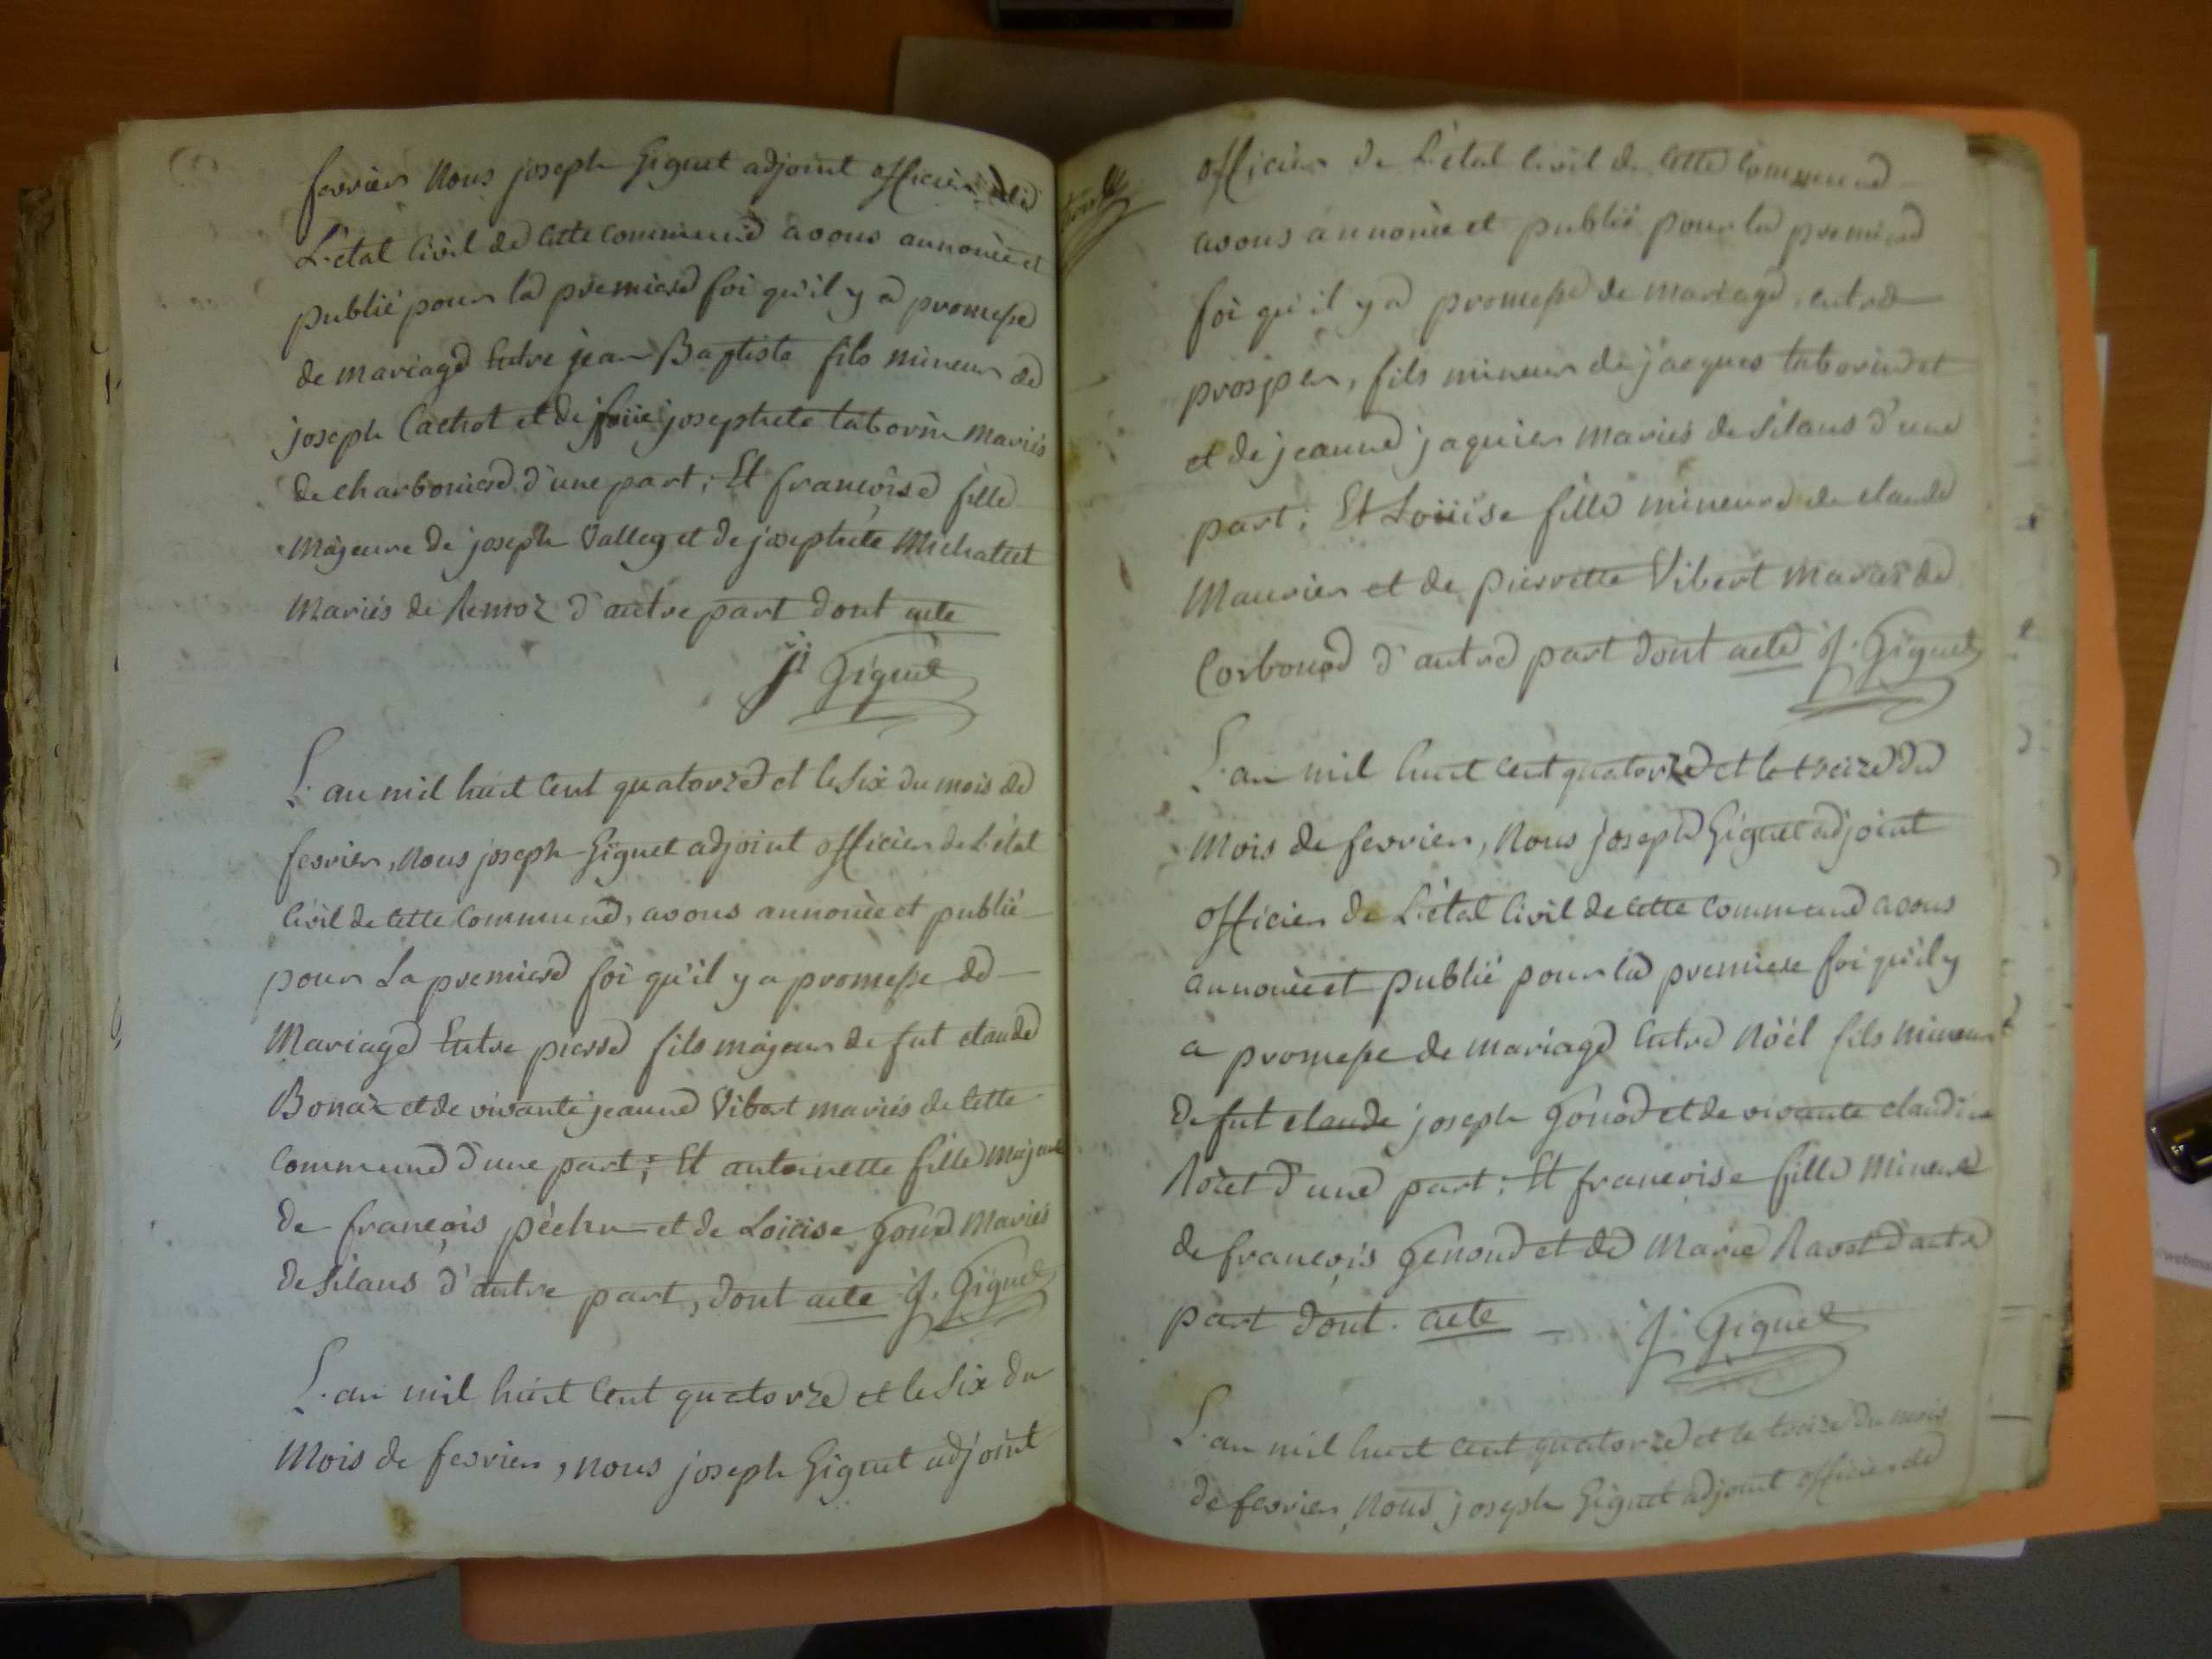 fevrier Nous joseph Giguet adjoint officier de
L'etat Civil de cette commune avons annoncé et
publié pour la premiere foi qu'il y a promesse
de mariage Entre jean Baptiste fils mineur de
joseph Cachot et de josephete taborin mariés
de charboniere d'une part; Et francoise fille
Majeure de joseph Valley et de josephete Michallet
Mariés de Remoz d'autre part dont acte
j. Giguet
L'an mil huit Cent quatorze et le Six du mois de
fevrier, Nous joseph Giguet adjoint officier de L'état
Civil de cette Commune, avons annoncé et publié
pour La premiere foi qu'il y a promesse de
Mariage Entre pierre fils majeur de fut claude
Bonaz et de vivante jeanne Vibert mariés de cette
commune d'une part; Et antoinette fille Majeure
de françois péchu et de Loüise Goux Mariés
de Silans d'autre part, dont acte J. Giguet
L'an mil huit Cent quatorze et le Six du
Mois de fevrier, nous joseph Giguet adjoint
officier de L'état Civil de cette commune
avons annoncé et publié pour la premiere
foi qu'il y a promesse de mariage, entre
prosper, fils mineur de jacques taborin et
et de jeanne jaquier mariés de Silans d'une
part; Et Loüise fille mineure de claude
Maurier et de pierrette Vibert mariés de
Corbonod d'autre part dont acte J. Giguet
L'an mil huit Cent quatorze et le treize du
Mois de fevrier, Nous joseph Giguet adjoint
officier de L'état Civil de cette commune avons
annoncé et publié pour la premiere foi qu'il y
a promesse de mariage Entre Noël fils mineur
de fut claude joseph Gonod et de vivante claudine
Rozet d'une part; Et francoise fille Mineure
de françois Genoud et de Marie Ravot d'autre
part dont acte J. Giguet
L'an mil huit Cent quatorze et le treize du mois
de fevrier, Nous joseph Giguet adjoint officier de